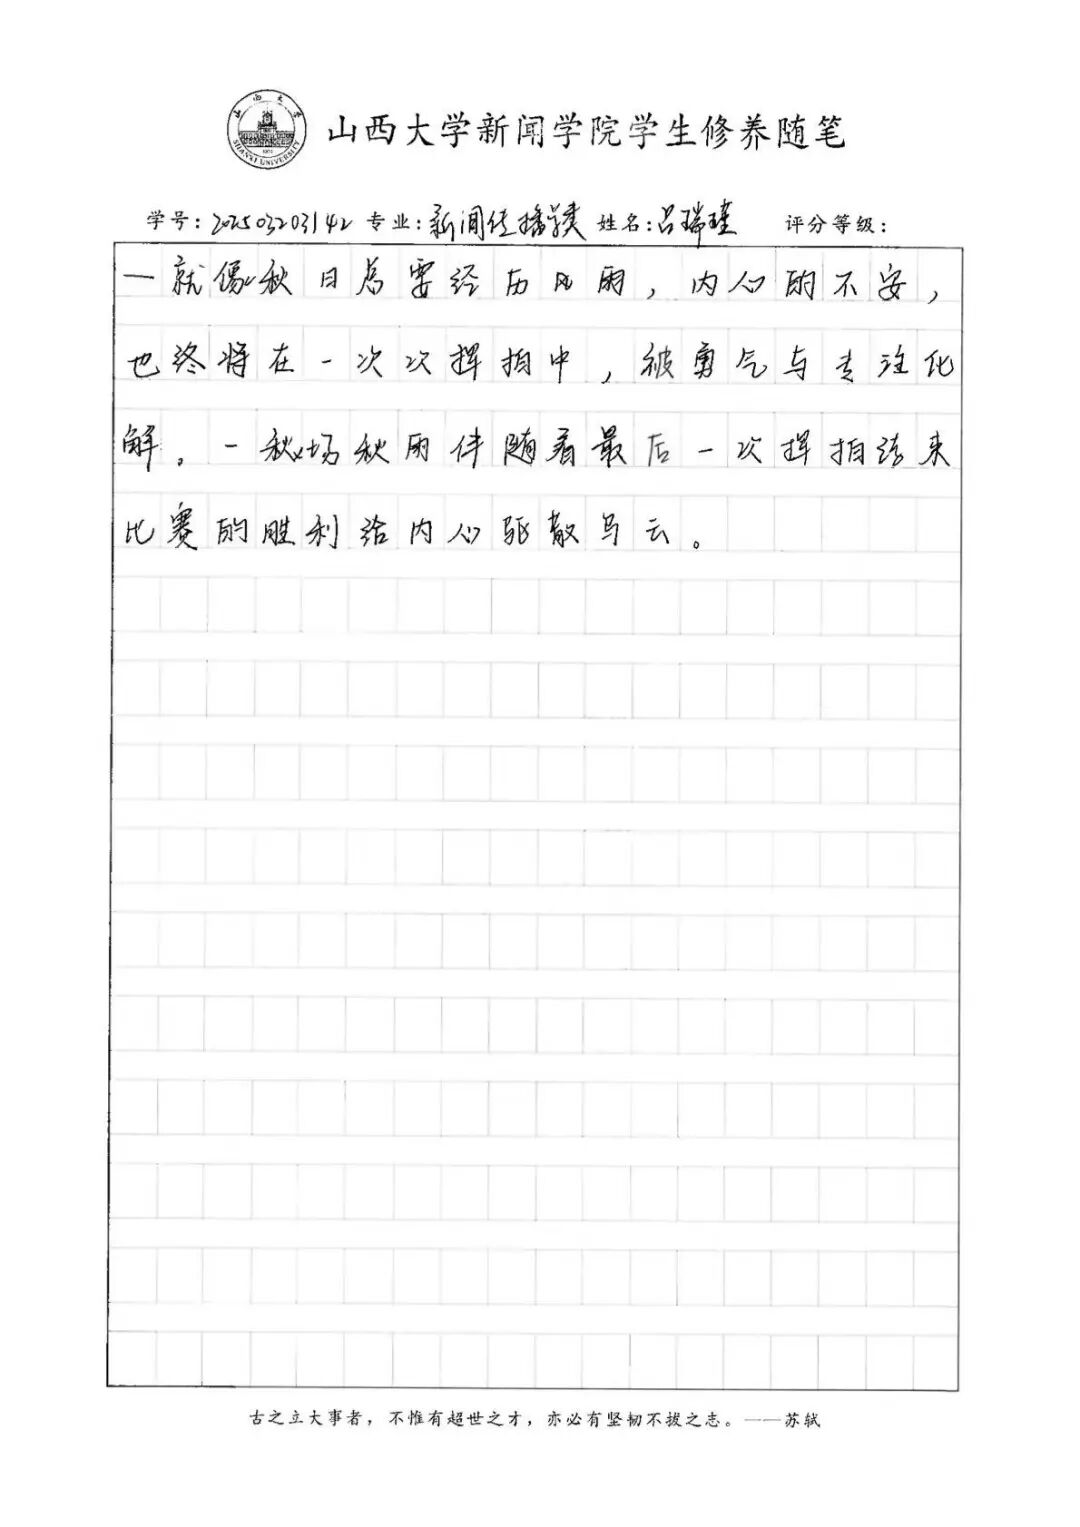 山西大学
SHANXI UNIVERSITY
1902
山西大学新闻学院学生修养随笔
学号：202503203142 专业：新闻传播学类 姓名：吕瑞瑾 评分等级：
一就像秋日总要经历风雨，内心的不安，
也终将在一次次挥拍中，被勇气与专注化
解。一场秋雨伴随着最后一次挥拍结束
比赛的胜利给内心驱散乌云。
古之立大事者，不惟有超世之才，亦必有坚韧不拔之志。——苏轼